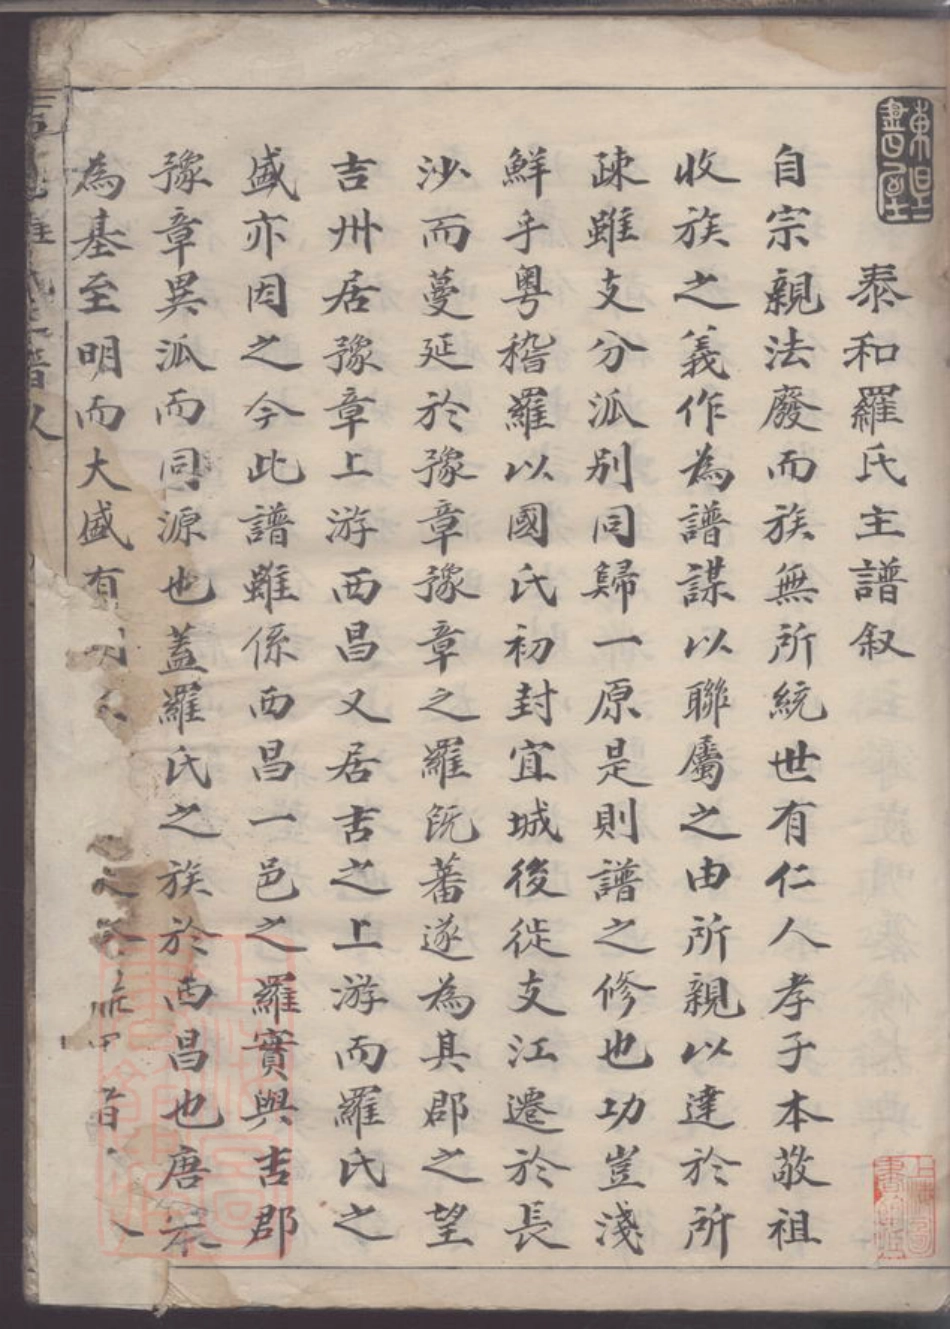 泰和羅氏主譜叙
自宗親法廢而族無所統世有仁人孝子本敬祖
收族之義作為譜諜以聯屬之由所親以達於所
疎雖支分泒別同歸一原是則譜之修也功豈淺
鮮乎粤稽羅以國氏初封宜城後徙支江遷於長
沙而蔓延於豫章豫章之羅既蕃遂為其郡之望
吉州居豫章上游西昌又居吉之上游而羅氏之
盛亦因之今此譜雖係西昌一邑之羅實與吉郡
豫章異泒而同源也蓋羅氏之族於西昌也唐宋
為基至明而大盛有